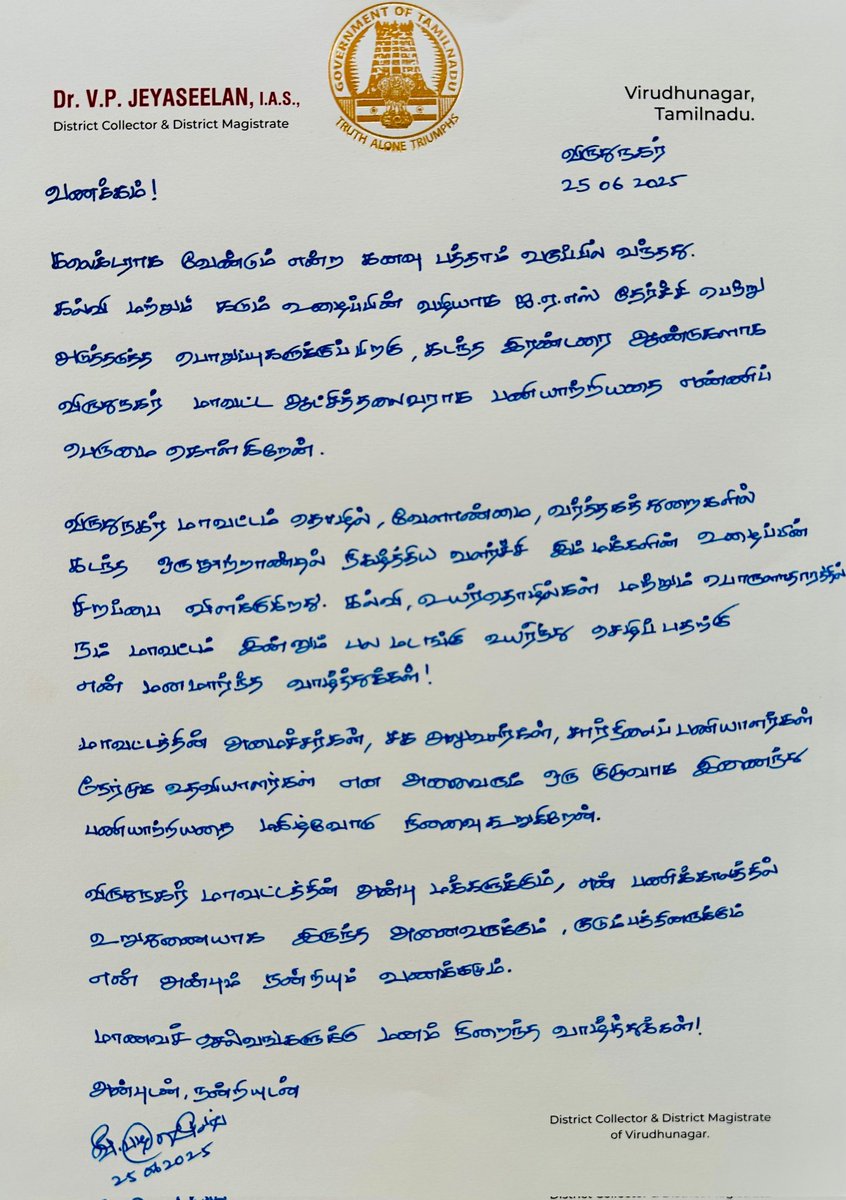 GOVERNMENT OF TAMILNADU
TRUTH ALONE TRIUMPHS
Dr. V.P. JEYASEELAN, I.A.S.,
District Collector & District Magistrate
Virudhunagar,
Tamilnadu.
விருதுநகர்
25 06 2025
வணக்கம்!
கலெக்டராக வேண்டும் என்ற கனவு பத்தாம் வகுப்பில் வந்தது.
கல்வி மற்றும் கடும் உழைப்பின் வழியாக ஐ.ஏ.எஸ் தேர்ச்சி பெற்று
அடுத்தடுத்த பொறுப்புகளுக்குப்பிறகு, கடந்த இரண்டரை ஆண்டுகளாக
விருதுநகர் மாவட்ட ஆட்சித்தலைவராக பணியாற்றியதை எண்ணிப்
பெருமை கொள்கிறேன்.
விருதுநகர் மாவட்டம் தொழில், வேளாண்மை, வர்த்தகத்துறைகளில்
கடந்த ஒருநூற்றாண்டில் நிகழ்த்திய வளர்ச்சி இம்மக்களின் உழைப்பின்
சிறப்பை விளக்குகிறது. கல்வி, உயர்தொழில்கள் மற்றும் பொருளாதாரத்தில்
நம் மாவட்டம் இன்னும் பல மடங்கு உயர்ந்து செழிப்பதற்கு
என் மனமார்ந்த வாழ்த்துக்கள்!
மாவட்டத்தின் அமைச்சர்கள், சக அலுவலர்கள், சார்நிலைப் பணியாளர்கள்
நேர்முக உதவியாளர்கள் என அனைவரும் ஒரு குழுவாக இணைந்து
பணியாற்றியதை மகிழ்வோடு நினைவுகூறுகிறேன்.
விருதுநகர் மாவட்டத்தின் அன்பு மக்களுக்கும், என் பணிக்காலத்தில்
உறுதுணையாக இருந்த அனைவருக்கும், குடும்பத்தினருக்கும்
என் அன்பும் நன்றியும் வணக்கமும்.
மாணவச் செல்வங்களுக்கு மனம் நிறைந்த வாழ்த்துக்கள்!
அன்புடன், நன்றியுடன்
25 06 2025
District Collector & District Magistrate
of Virudhunagar.